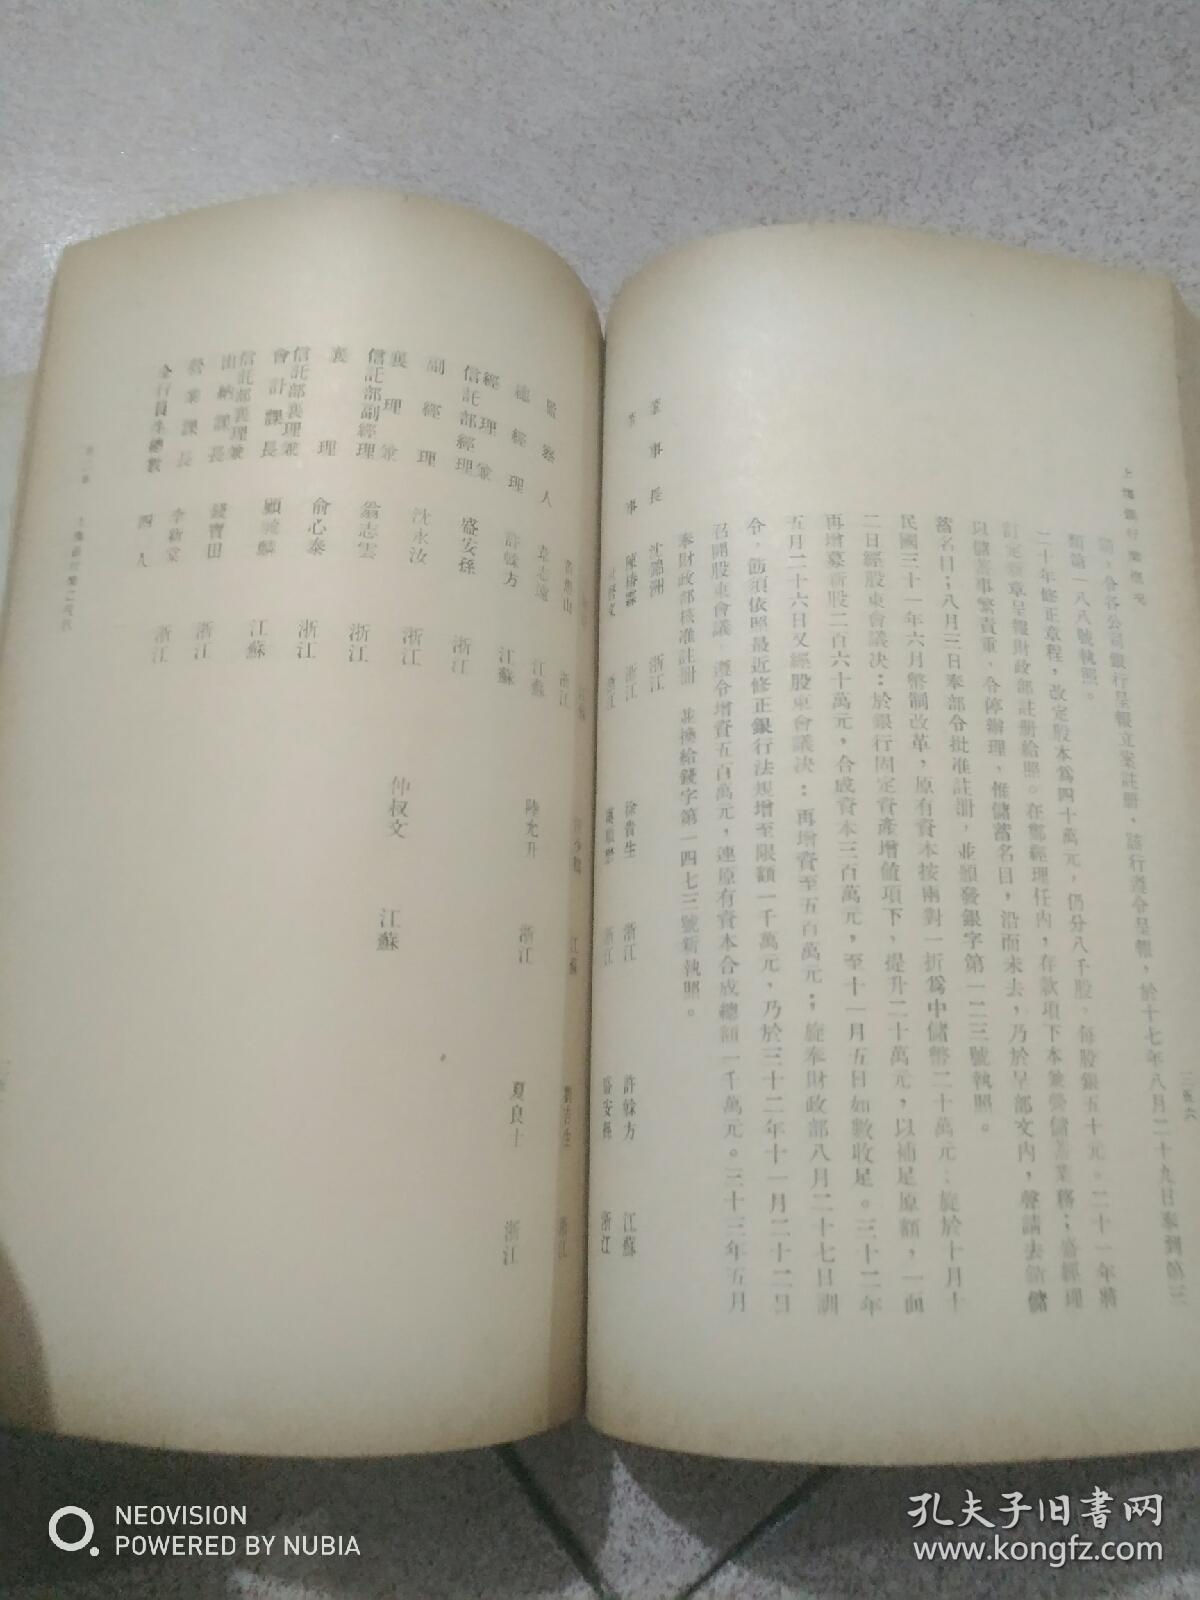 上海銀行業概況
三五六
類第一八八號執照。
二十年修正章程，改定股本爲四十萬元，仍分八千股，每股銀五十元。二十一年將
訂定新章呈報財政部註册給照。在鄭經理任內，存款項下本兼營儲蓄業務；盛經理
以儲蓄事繁責重，令停辦理，惟儲蓄名目，沿而未去，乃於呈部文內，聲請去銷儲
蓄名目；八月三日奉部令批准註册，並頒發銀字第一二三號執照。
民國三十一年六月幣制改革，原有資本按兩對一折爲中儲幣二十萬元；旋於十月十
二日經股東會議决：於銀行固定資產增值項下，提升二十萬元，以補足原額，一面
再增募新股二百六十萬元，合成資本三百萬元，至十一月五日如數收足。三十二年
五月二十六日又經股東會議决：再增資至五百萬元；旋奉財政部八月二十七日訓
令，飭須依照最近修正銀行法規增至限額一千萬元，乃於三十二年十一月二十二日
召開股東會議，遵令增資五百萬元，連原有資本合成總額一千萬元。三十三年五月
奉財政部核准註册，並換給錢字第一四七三號新執照。
董事長 沈錦洲 浙江
董事 陳椿霖 浙江 徐貴生 浙江 許榦方 江蘇
浙江 浙江 盛安孫 浙江
監察人 江蘇 陸允升 浙江 夏良士 浙江
總經理 許榦方 江蘇
經理兼信託部經理 盛安孫 浙江
副經理 沈永汝 浙江 仲叔文 江蘇
襄理兼信託部副經理 翁志雲 浙江
襄理 俞心泰 浙江
信託部襄理兼會計課長 江蘇
信託部襄理兼出納課長 錢寶田 浙江
營業課長 李新堂 浙江
全行員生總數 四 人
NEOVISION
POWERED BY NUBIA
孔夫子旧書网
www.kongfz.com